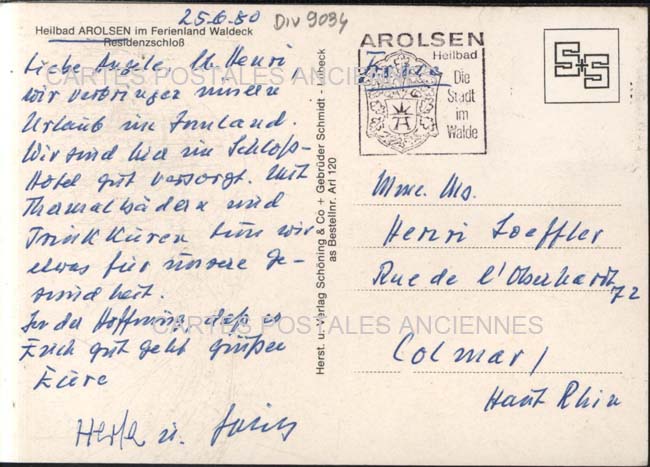 25.6.80 Div 9034
Heilbad AROLSEN im Ferienland Waldeck
Residenzschloß
Liebe Angèle, M. Henri
wir verbringen unseren
Urlaub im Inland.
Wir sind hier im Schloß-
Hotel gut versorgt. Mit
Thermalbädern und
Trinkkuren tun wir
etwas für unsere Ge-
sundheit.
In der Hoffnung, daß es
Euch gut geht grüßen
Eure
u.
CARTES POSTALES ANCIENNES
CARTES POSTALES ANCIENNES
Herst. u. Verlag Schöning & Co + Gebrüder Schmidt - Lübeck
as Bestellnr. Arl 120
AROLSEN
Heilbad
Die
Stadt
im
Walde
S+S
Mme. Ms.
Henri Loeffler
Rue de l'Oberhardt
72
Colmar/
Haut Rhin